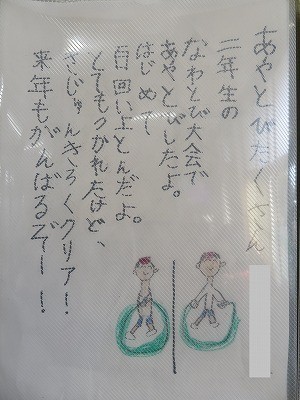 あやとびたくさん
二年生の
なわとび大会で
あやとびしたよ。
はじめて
百回い上とんだよ。
とてもつかれたけど、
さいじゅんきろくクリアー！
来年もがんばるぞー！！